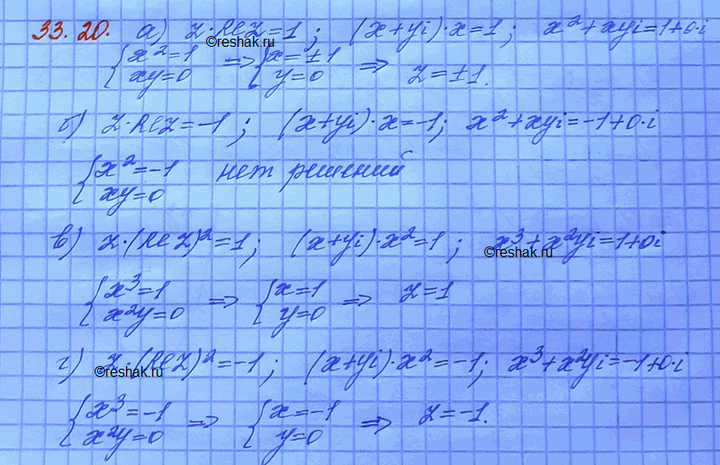 33.20. а) z·Rez=1 ; (x+yi)·x=1 ; x²+xyi=1+0·i
©reshak.ru
{x²=1 xy=0 ⇒ {x=±1 y=0 ⇒ z=±1.
б) z·Rez=-1 ; (x+yi)·x=-1; x²+xyi=-1+0·i
{x²=-1 xy=0 нет решений
в) z·(Rez)²=1; (x+yi)·x²=1 ; x³+x²yi=1+0i
©reshak.ru
{x³=1 x²y=0 ⇒ {x=1 y=0 ⇒ z=1
г) z·(Rez)²=-1 ; (x+yi)·x²=-1; x³+x²yi=-1+0·i
©reshak.ru
{x³=-1 x²y=0 ⇒ {x=-1 y=0 ⇒ z=-1.